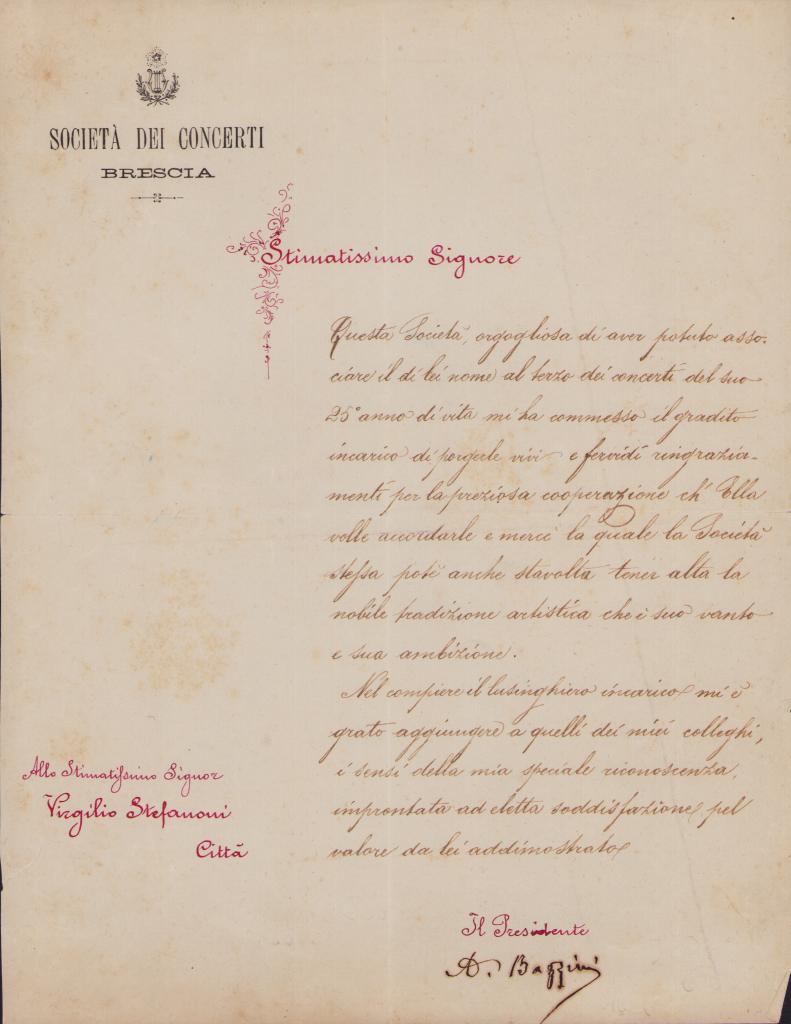 SOCIETÀ DEI CONCERTI
BRESCIA
Stimatissimo Signore
Questa Società, orgogliosa di aver potuto asso-
ciare il di lei nome al terzo dei concerti del suo
25° anno di vita mi ha commesso il gradito
incarico di porgerle vivi e fervidi ringrazia-
menti per la preziosa cooperazione ch' Ella
volle accordarle e mercè la quale la Società
stessa potè anche stavolta tener alta la
nobile tradizione artistica che è suo vanto
e sua ambizione.
Nel compiere il lusinghiero incarico mi è
grato aggiungere a quelli dei miei colleghi,
i sensi della mia speciale riconoscenza,
improntata ad eletta soddisfazione pel
valore da lei addimostrato
Allo Stimatissimo Signor
Virgilio Stefanoni
Città
Il Presidente
A. Bazzini